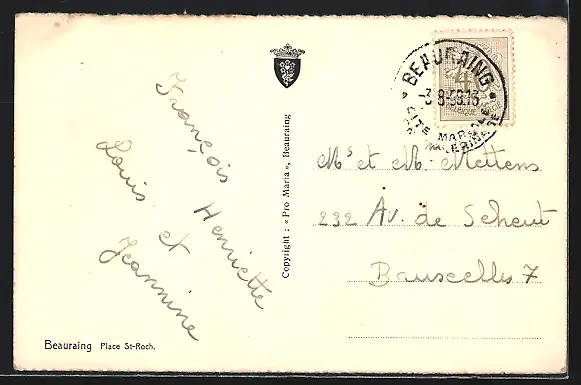 François Henriette
Louis et Jeannine
Copyright : « Pro Maria », Beauraing
BEAURAING
-3-8-59.13
CITE MARIALE
4
Ms et M. Mettens
232 Av. de Scheut
Bruxelles 7
Beauraing Place St-Roch.